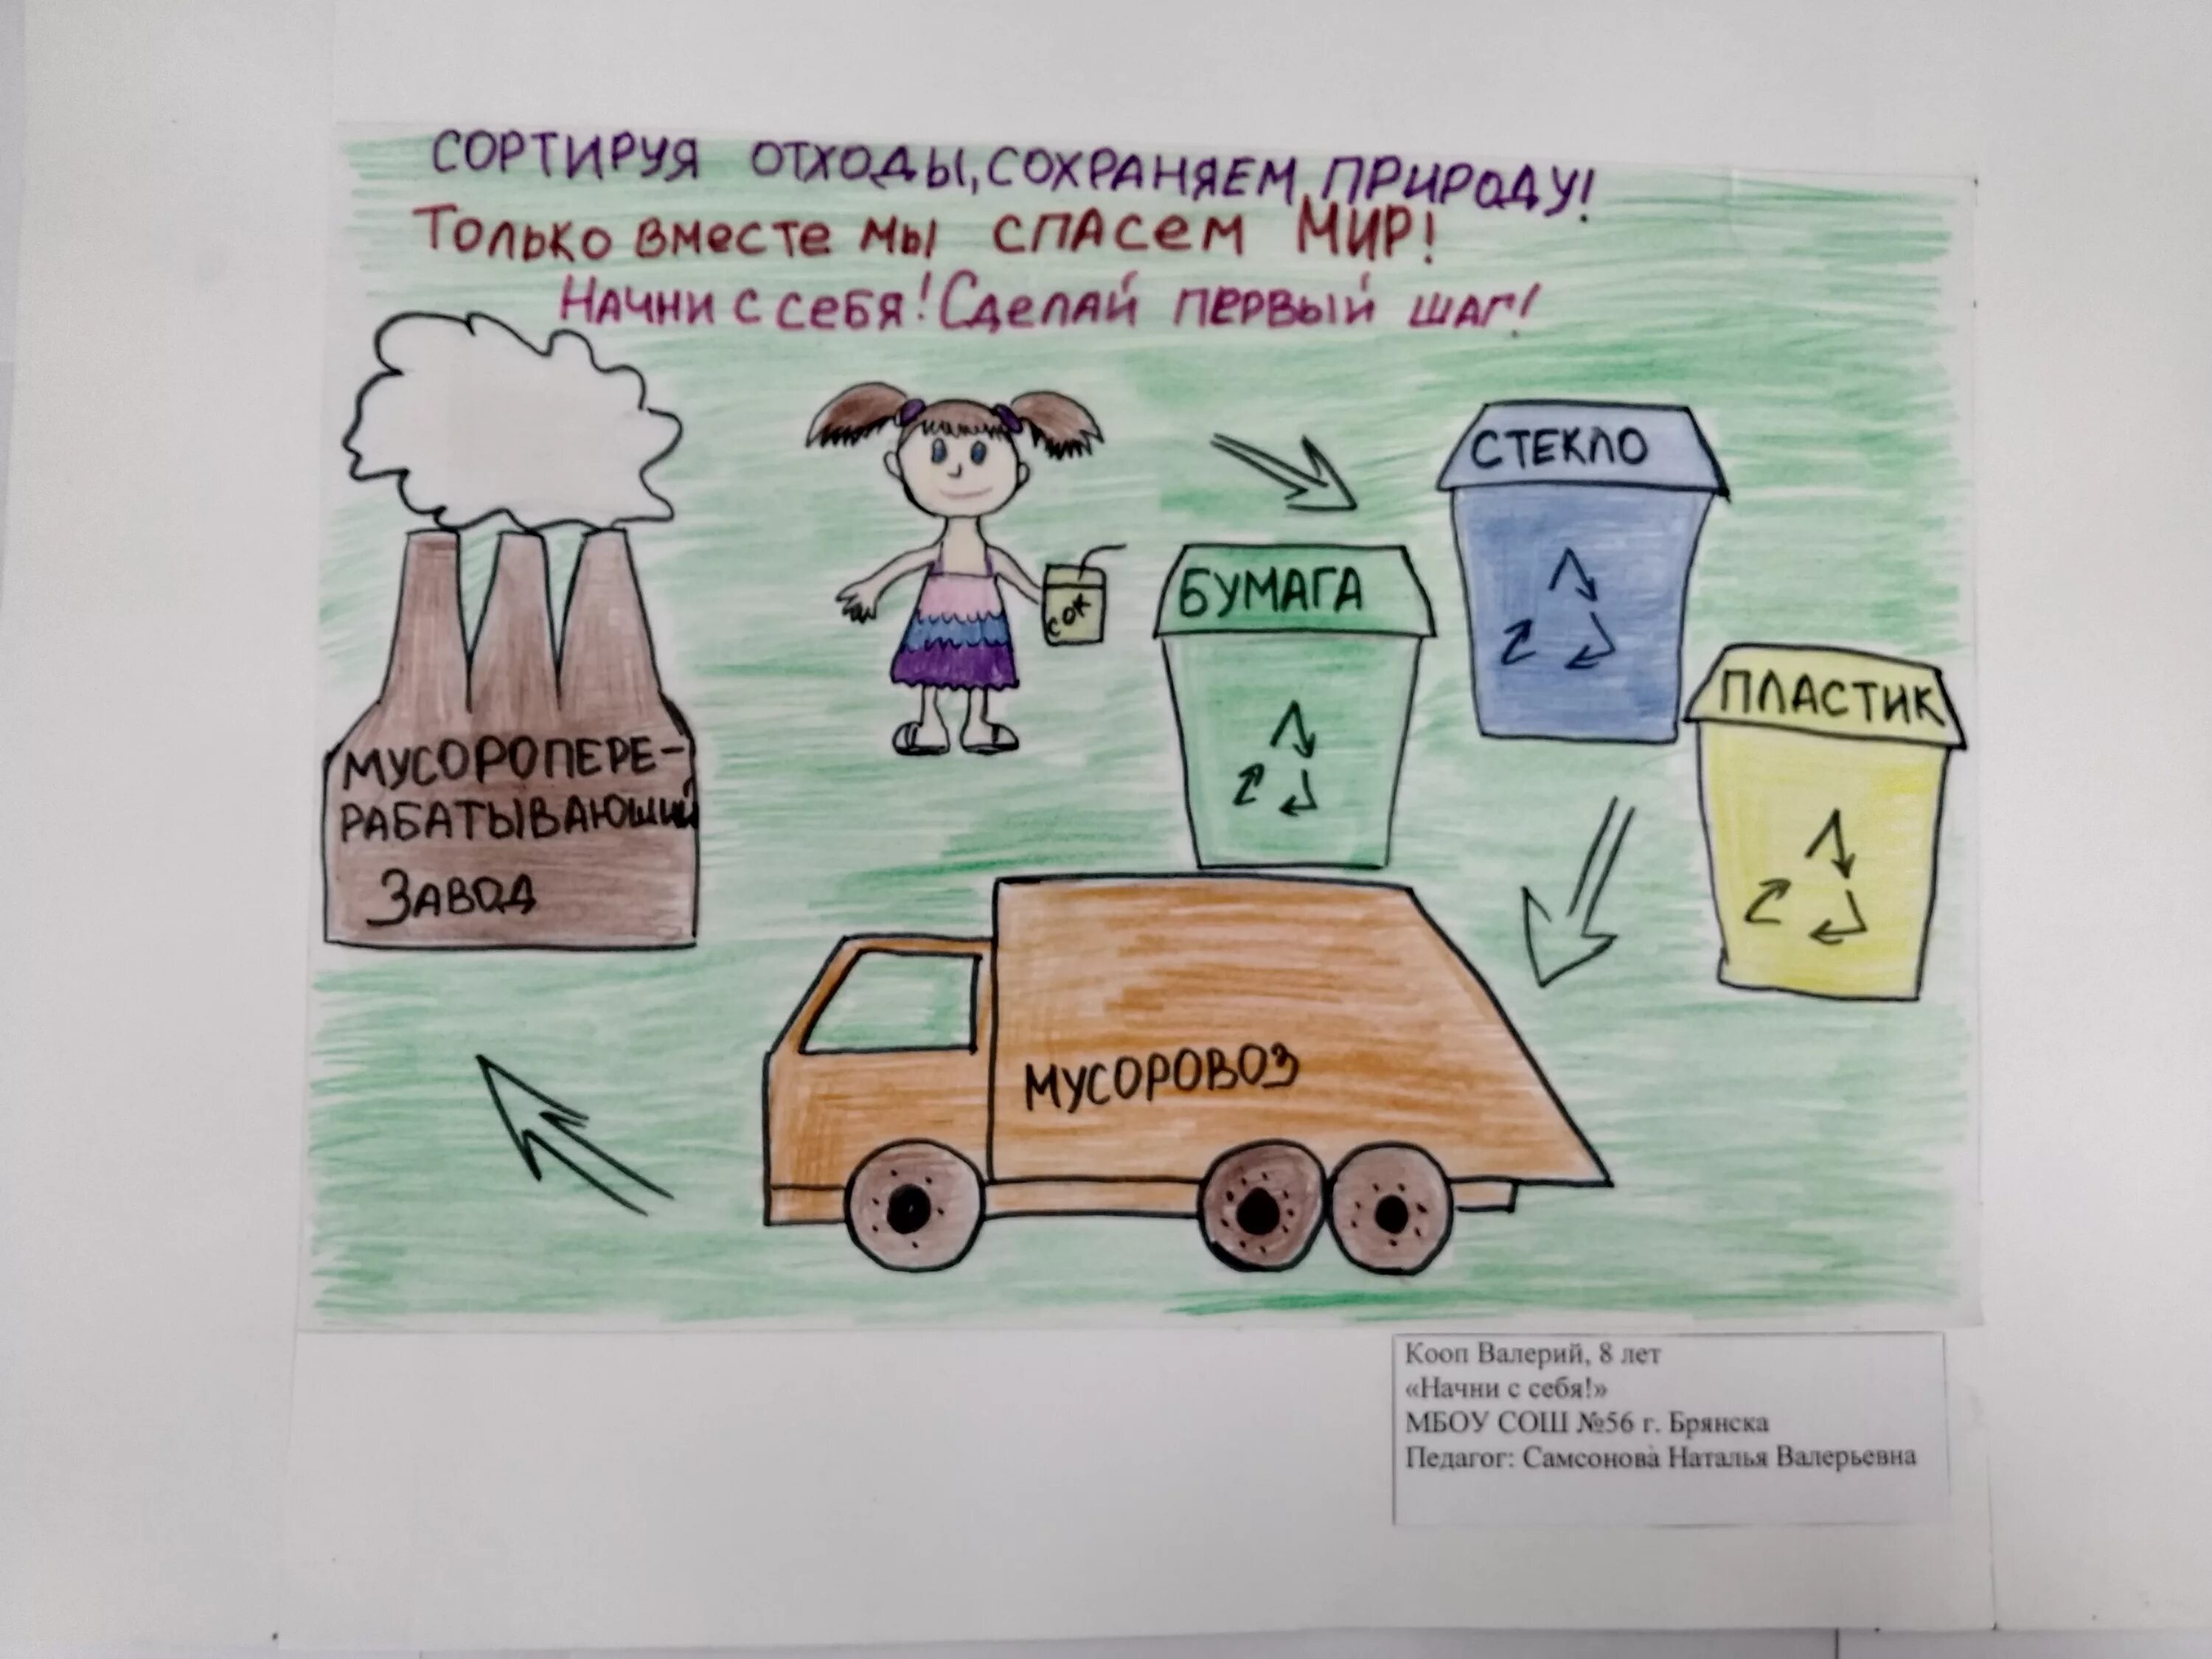 СОРТИРУЯ ОТХОДЫ, СОХРАНЯЕМ ПРИРОДУ!
ТОЛЬКО ВМЕСТЕ МЫ СПАСЕМ МИР!
НАЧНИ С СЕБЯ! СДЕЛАЙ ПЕРВЫЙ ШАГ!
СТЕКЛО
БУМАГА
СОК
ПЛАСТИК
МУСОРОПЕРЕ-
РАБАТЫВАЮЩИЙ
ЗАВОД
МУСОРОВОЗ
Кооп Валерий, 8 лет
«Начни с себя!»
МБОУ СОШ №56 г. Брянска
Педагог: Самсонова Наталья Валерьевна